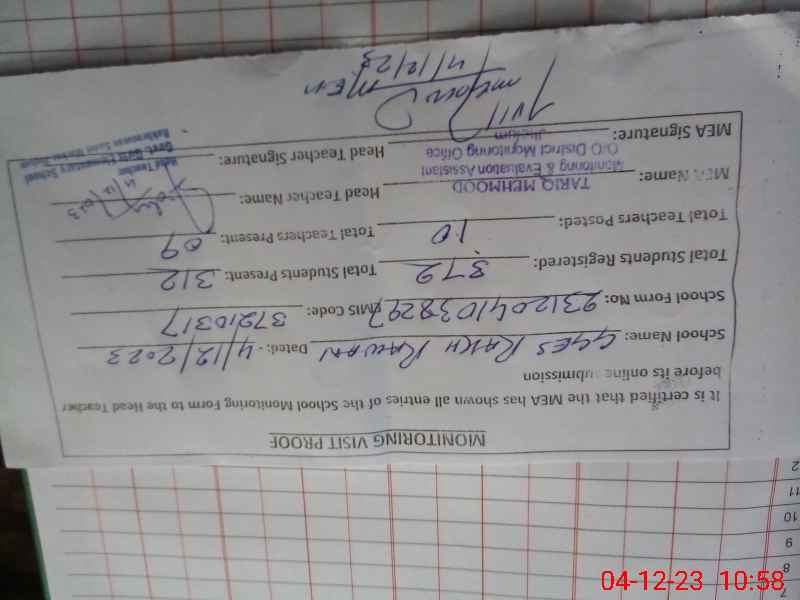 MONITORING VISIT PROOF
It is certified that the MEA has shown all entries of the School Monitoring Form to the Head Teacher
before its online submission
School Name: GGES RAKH RAWAN Dated:- 4/12/2023
School Form No: 9312041038297 EMIS Code: 37210317
Total Students Registered: 372 Total Students Present: 312
Total Teachers Posted: 10 Total Teachers Present: 09
MEA Name: TARIQ MEHMOOD Head Teacher Name:
Monitoring & Evaluation Assistant
O/O District Monitoring Office
Jhelum
MEA Signature: Head Teacher Signature:
4/12/2023
Head Teacher
Govt. Girls Elementary School
MEA
4/12/23
7
8
9
10
11
2
04-12-23 10:58